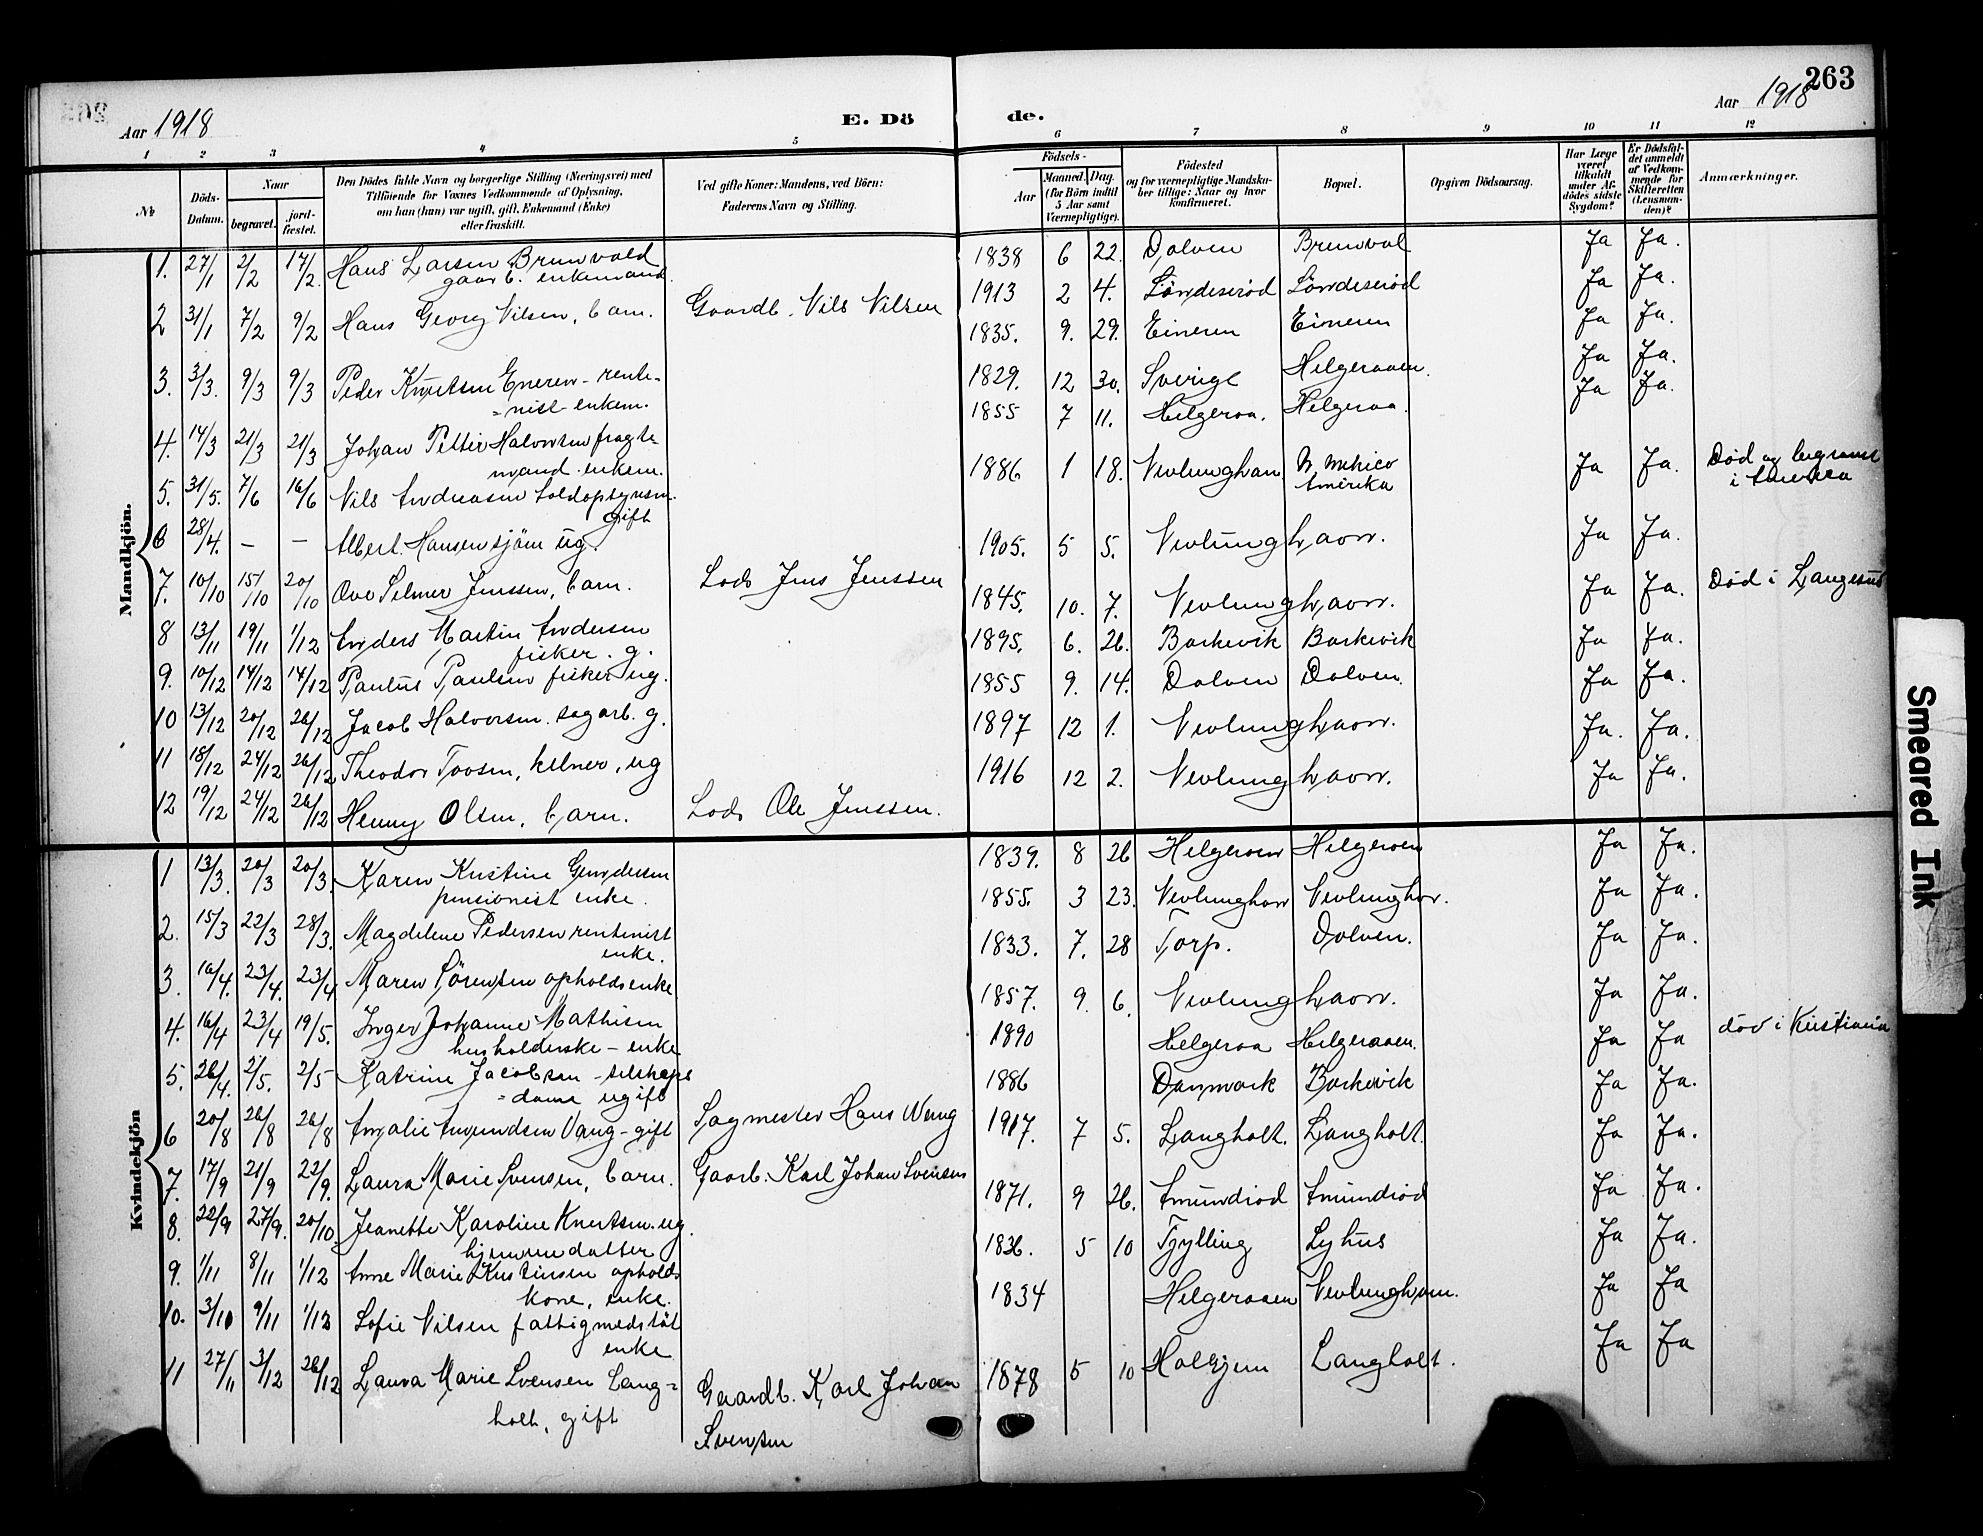 Aar 1918
E. Dö
de.
Aar 1918
263
1 2 3 4 5 6 7 8 9 10 11 12
№
Döds-
Datum.
Naar
begravet.
jord-
fæstet.
Den Dödes fulde Navn og borgerlige Stilling (Næringsvei) med
Tilföiende for Voxnes Vedkommende af Oplysning,
om han (hun) var ugift, gift, Enkemand (Enke)
eller fraskilt.
Ved gifte Koner: Mandens, ved Börn:
Faderens Navn og Stilling.
Födsels-
Aar
Maaned. Dag.
(for Börn indtil
5 Aar samt
Værnepligtige).
Födested
og for værnepligtige Mandska-
ber tillige: Naar og hvor
konfirmeret.
Bopæl.
Opgiven Dödsaarsag.
Har Læge
været
tilkaldt
under Af-
dödes sidste
Sygdom?
Er Dödsfal-
det anmeldt
af Vedkom-
mende for
Skifteretten
(Lensman-
den)?
Anmærkninger.
Mandkjön.
1. 27/1 2/2 17/2 Hans Larsen Brunvald
gaarb. enkemand
1838 6 22. Dolven Brunval Ja Ja.
2 31/1 7/2 9/2 Hans Georg Nilsen, barn. Gaardb. Nils Nilsen
1913 2 4. Söndersröd Söndersröd Ja Ja.
3. 3/3. 9/3 9/3 Peder Knutsen Eneren - rente-
-nist - enkem.
1835. 9. 29. Eineren Eineren Ja Ja.
4. 14/3 21/3 21/3 Johan Petter Halvorsen fragte-
mand. enkem.
1829. 12 30. Sverige Helgeraaen. Ja Ja.
5. 31/5. 7/6 16/6 Nils Andreasen toldopsynsm.
gift
1855 7 11. Helgeroa. Helgeroa. Ja Ja.
6 28/4. - - Albert. Hansen sjöm ug.
1886 1 18. Nevlunghavn N. Mehico
Amerika Ja Ja. Död og begravet
i Amerika
7. 10/10 15/10 20/10 Ove Selmer Jenssen, barn. Lods Jens Jenssen
1905. 5 5. Nevlunghavn. Ja Ja.
8 13/11 19/11 1/12 Anders Martin Andersen
fisker. g.
1845. 10. 7. Nevlunghavn. Ja Ja. Död i Langesund
9. 10/12 14/12 14/12 Paulus Paulsen fisker ug.
1895. 6. 26. Barkevik Barkevik Ja Ja.
10 13/12 20/12 26/12 Jacob Halvorsen. sagarb. g.
1855 9. 14. Dolven Dolven. Ja Ja.
11 18/12 24/12 26/12 Theodor Toosen, kelner, ug
1897 12 1. Nevlunghavn. Ja. Ja.
12 19/12 24/12 26/12 Henny Olsen, barn. Lods Ole Jenssen.
1916 12 2. Nevlunghavn. Ja Ja.
Kvindekjön
1 13/3. 20/3 20/3. Karen Kristine Gundersen
pensionist enke.
1839. 8 26 Helgeroen Helgeroen Ja Ja.
2. 15/3 22/3 28/3. Magdelene Pedersen rentenist
enke.
1855. 3 23. Nevlunghav Nevlunghav. Ja Ja.
3. 16/4. 23/4. 23/4 Maren Sörensen opholdsenke
1833. 7. 28 Torp. Dolven. Ja Ja.
4. 16/4 23/4 19/5. Inger Johanne Mathisen
husholderske - enke
1857. 9. 6. Nevlunghavn. Ja Ja.
5. 26/4. 2/5. 2/5 Katrine Jacobsen - selskaps
-dame ugift
1890 Helgeroa Helgeraaen. Ja Ja död i Kristiania
6 20/8 26/8 26/8 Amalie Amundsen Vang - gift Sagmester Hans Wang
1886 Danmark Barkevik Ja Ja.
7. 17/9 21/9 22/9. Laura Marie Svensen, barn. Gaarb. Karl Johan Svensen
1917. 7 5. Langholt. Langholt. Ja Ja.
8. 22/9 27/9. 20/10. Jeanette Karoline Knutsen. ug.
hjemmedatter
1871. 9 26. Amundröd Amundröd Ja Ja.
9. 1/11 8/11 1/12 Anne Marie Kristinsen opholds
kone, enke.
1836. 5 10 Tjylling Lyhus Ja Ja.
10. 3/10 9/11 1/12 Sofie Nilsen fattigmedstöt
enke
1834 Helgeraaen Nevlunghavn. Ja Ja
11 27/11 3/12 26/12 Laura Marie Svensen Lang-
holt, gift
Gaardb. Karl Johan
Svensen
1878 5 10 Langholt. Ja Ja
Smeared Ink